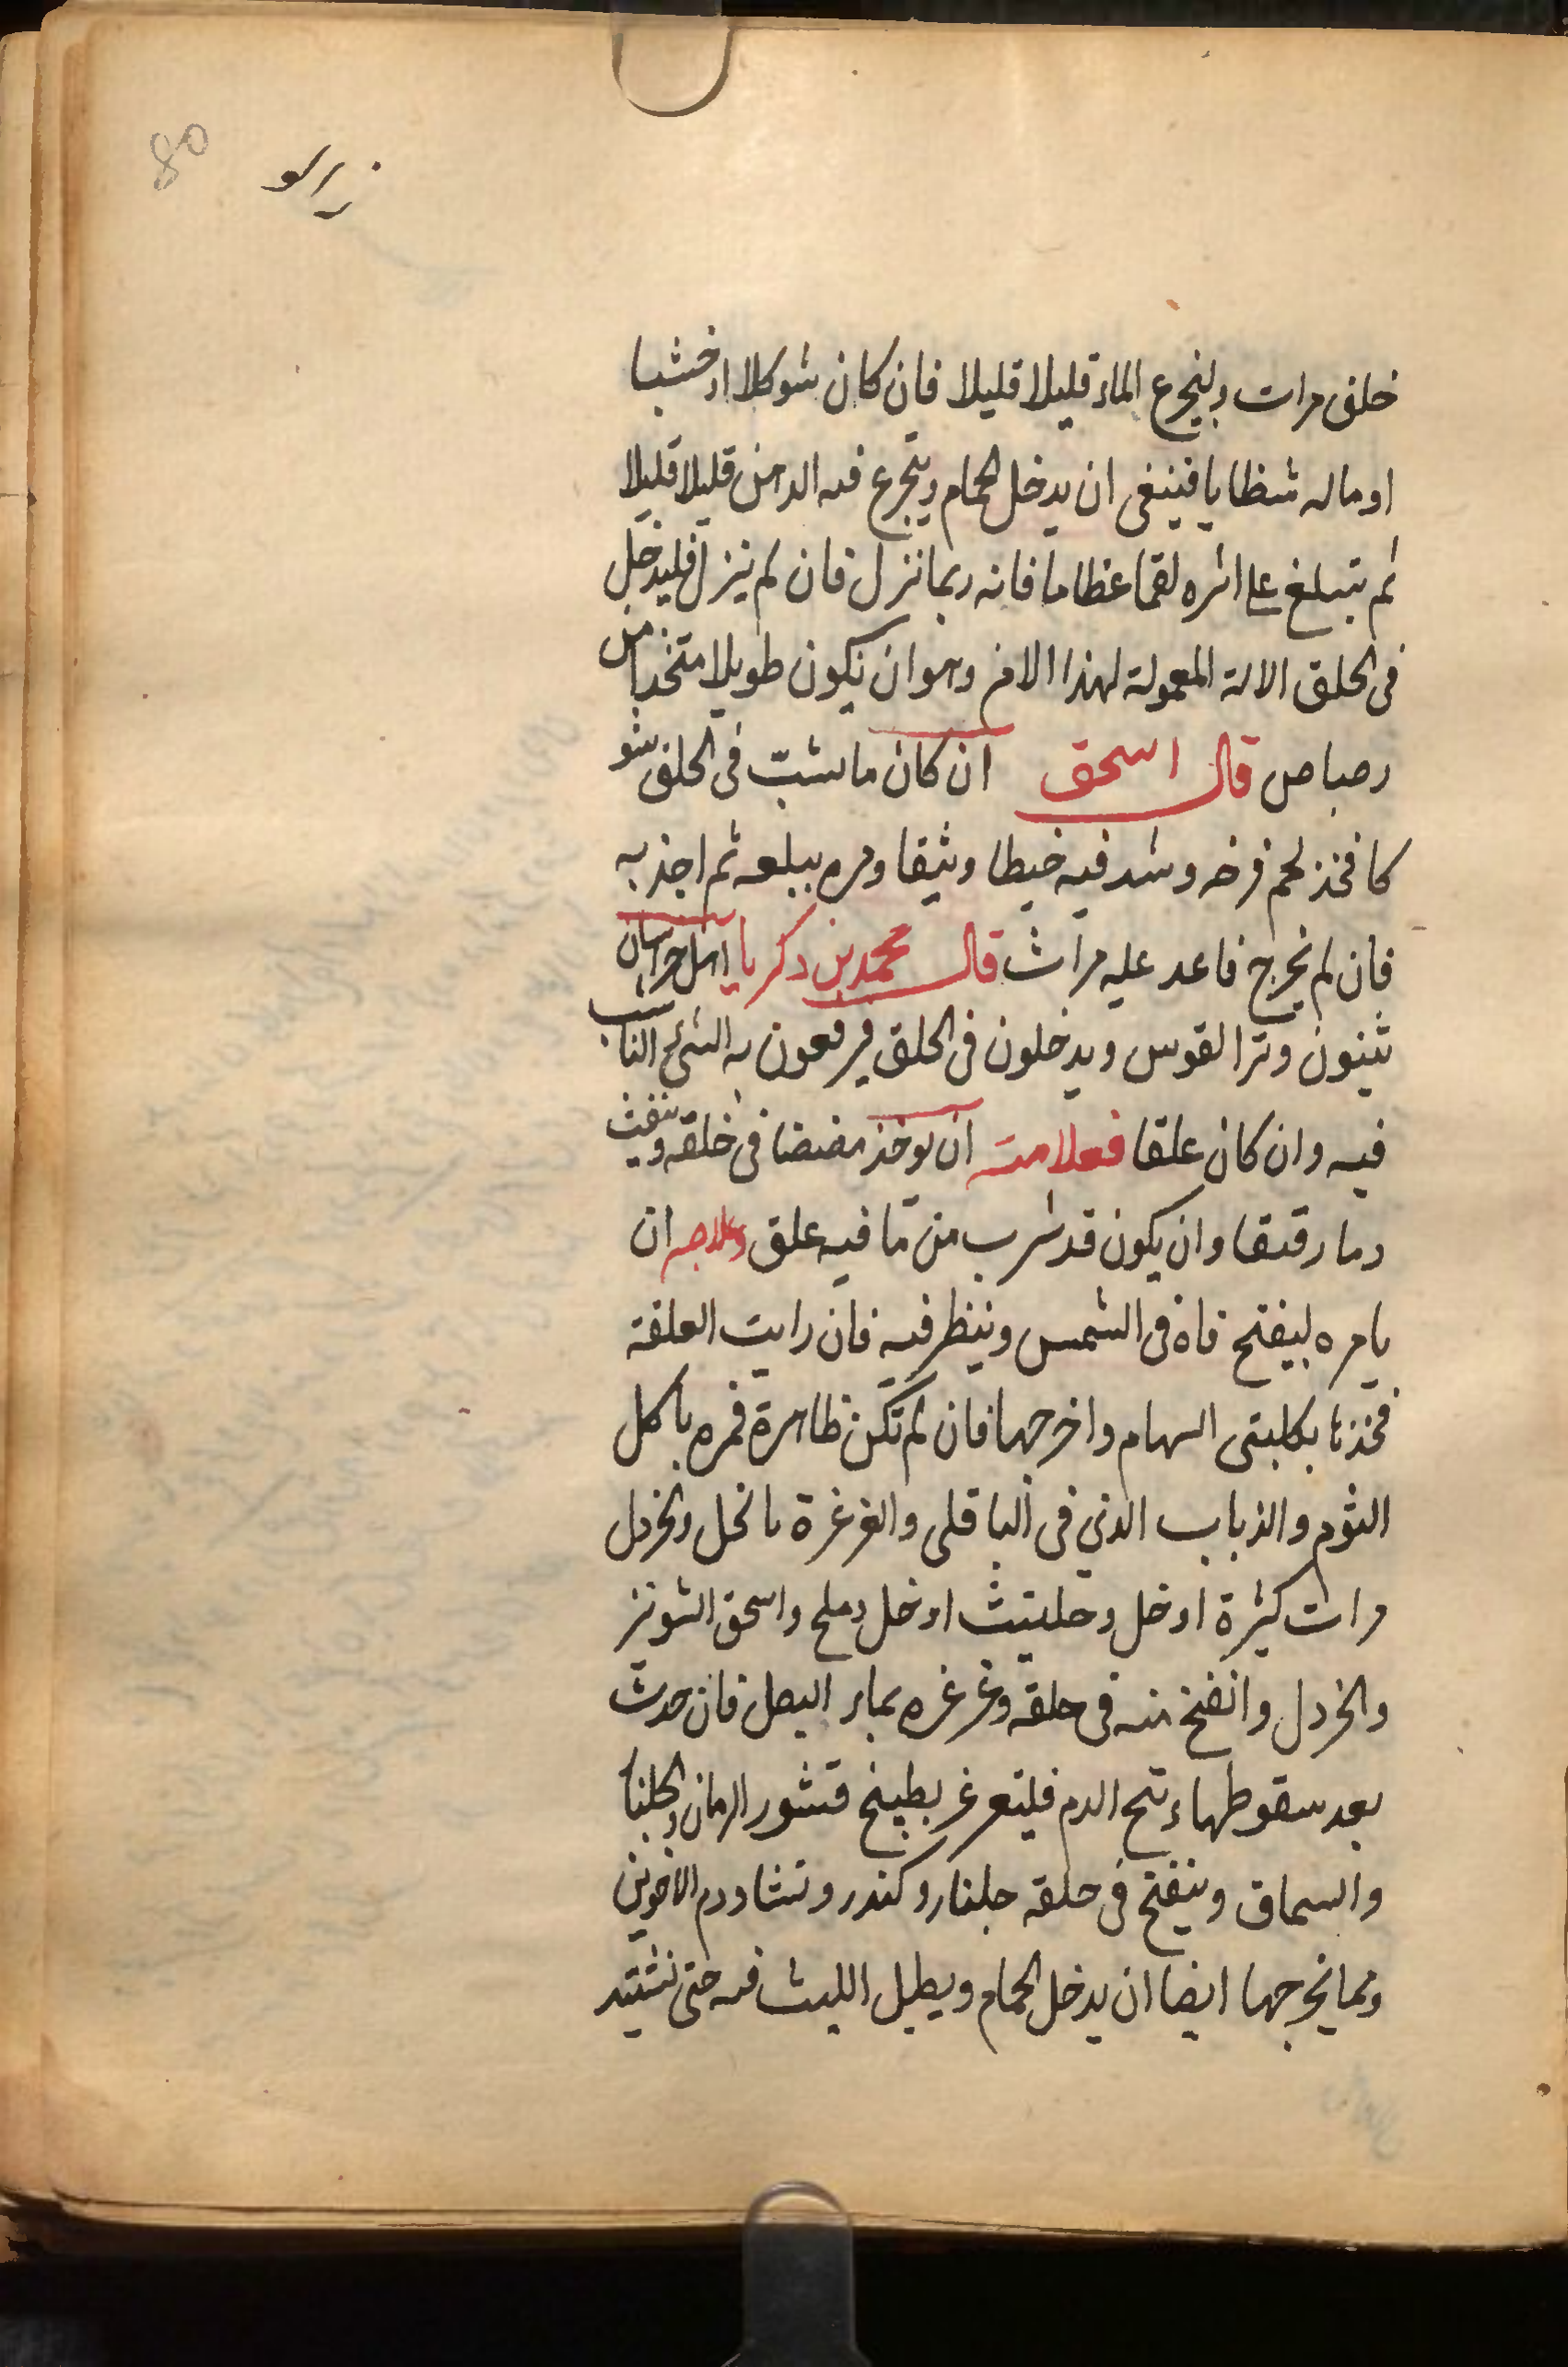 80
زالو
خلف مرات وليتجرع الماء قليلا قليلا فان كان شوكلا او خشبا
او ماله شظايا فينبغى ان يدخل الحمام ويتجرع فيه الدهن قليلا قليلا
ثم يتبلغ على اثره لقما عظاما فانه ربما نزل فان لم ينزل فليدخل
فى الحلق الالة المعمولة لهذا الامر وهو ان يكون طويلا متخذا من
رصاص قال اسحق ان كان ما نشب فى الحلق شو
كا فخذ لحم فرخه وشد فيه خيطا وثيقا ومره يبلعه ثم اجذبه
فان لم يخرج فاعد عليه مرات قال محمد بن زكريا اهل خراسان
يثنون وترا لقوس ويدخلون فى الحلق فيرفعون به الشئ الناشب
فيه وان كان علقا فعلامته ان يوخذ مضضا فى خلقه وينفث
دما رقيقا وان يكون قد شرب من ما فيه علق وعلاجه ان
يامره ليفتح فاه فى الشمس وينظر فيه فان رايت العلقة
فخذها بكلبتى السهام واخرجها فان لم تكن ظاهرة فمره باكل
الثوم والذباب الذي فى الباقلى والغرغرة بالخل والخردل
مرات كثيرة او خل وحلتيث او خل وملح واسحق الشونيز
والخردل وانفخ منه فى حلقه وغرغره بماء البصل فان حدث
بعد سقوطهاء تح الدم فليتغرغر بطبيخ قشور الرمان والجلنا
والسماق وينفخ فى حلقه جلنار وكندر ونشا ودم الاخوين
ومما يخرجها ايضا ان يدخل الحمام ويطيل اللبث فيه حتى يشتد